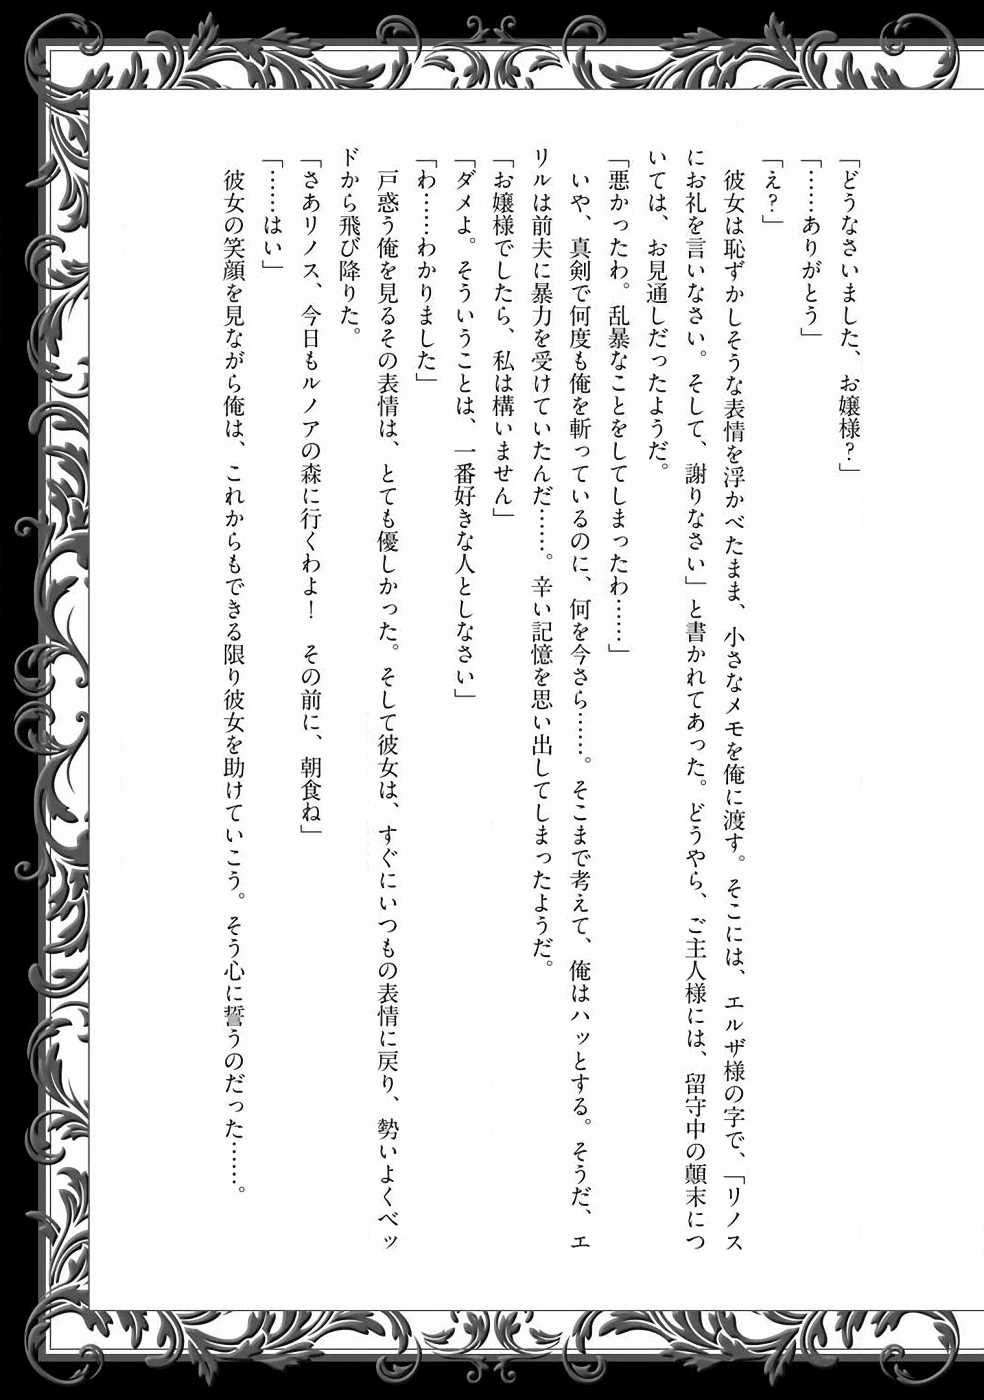 「どうなさいました、お嬢様？」
「……ありがとう」
「え？」
　彼女は恥ずかしそうな表情を浮かべたまま、小さなメモを俺に渡す。そこには、エルザ様の字で、「リノス
にお礼を言いなさい。そして、謝りなさい」と書かれてあった。どうやら、ご主人様には、留守中の顛末につ
いては、お見通しだったようだ。
「悪かったわ。乱暴なことをしてしまったわ……」
　いや、真剣で何度も俺を斬っているのに、何を今さら……。そこまで考えて、俺はハッとする。そうだ、エ
リルは前夫に暴力を受けていたんだ……。辛い記憶を思い出してしまったようだ。
「お嬢様でしたら、私は構いません」
「ダメよ。そういうことは、一番好きな人としなさい」
「わ……わかりました」
　戸惑う俺を見るその表情は、とても優しかった。そして彼女は、すぐにいつもの表情に戻り、勢いよくベッ
ドから飛び降りた。
「さあリノス、今日もルノアの森に行くわよ！　その前に、朝食ね」
「……はい」
　彼女の笑顔を見ながら俺は、これからもできる限り彼女を助けていこう。そう心に誓うのだった……。